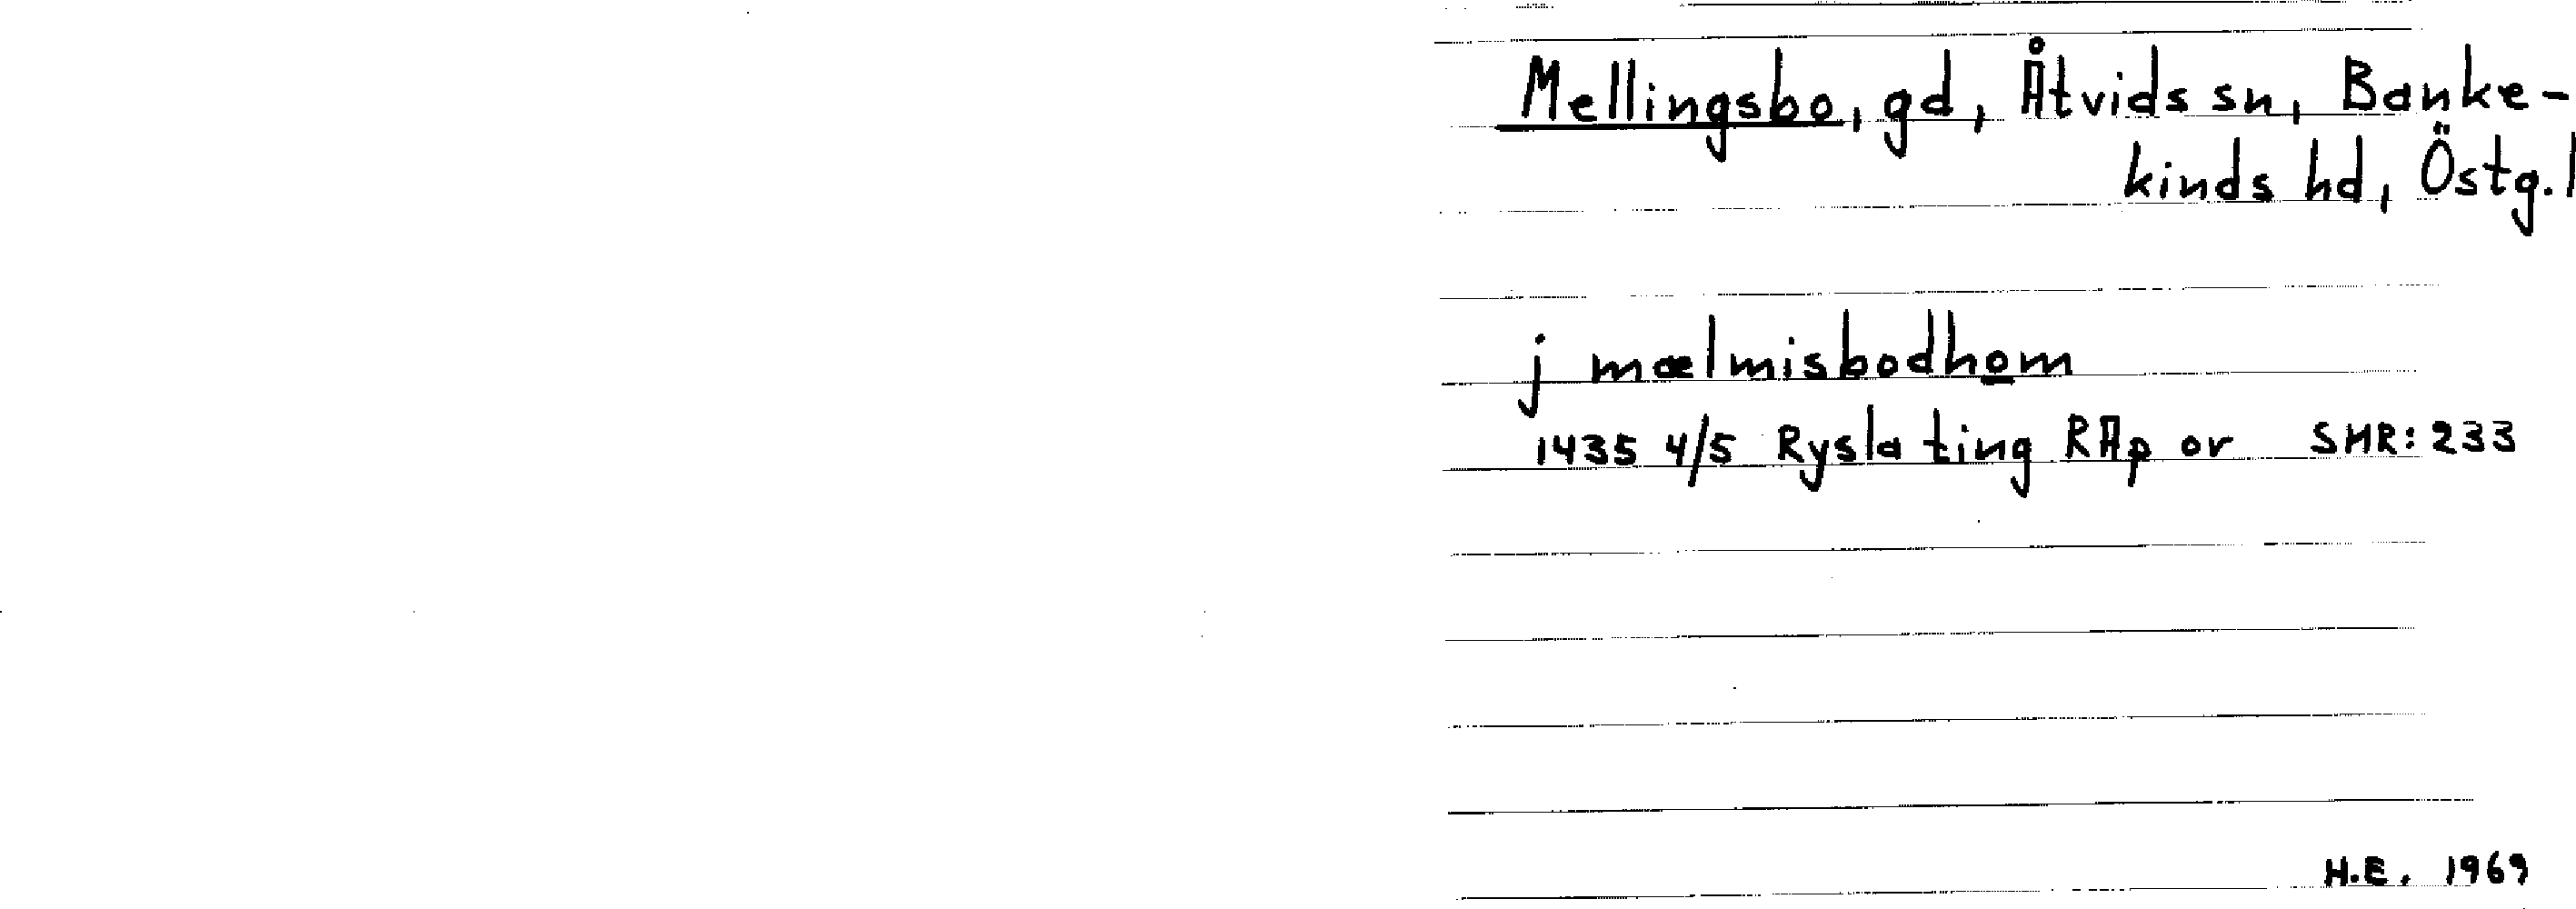 Mellingsbo, gd, Åtvids sn, Banke-
kinds hd, Östg.l
j mælmisbodhom
1435 4/5 Rysla ting RAp or SMR: 233
H.E. 1969